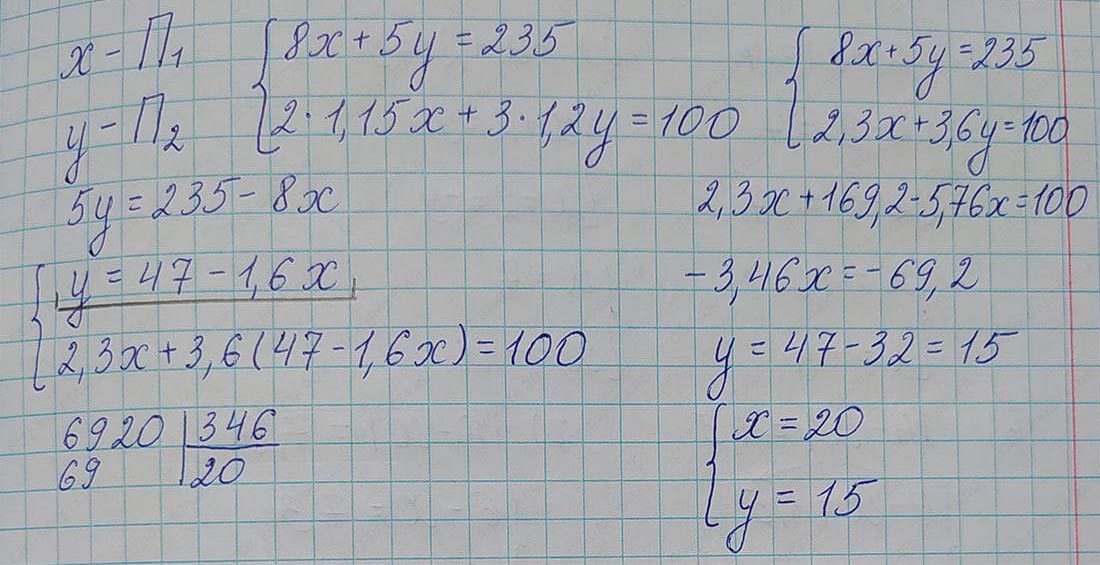 x - П₁
y - П₂
{ 8x + 5y = 235
2 · 1,15x + 3 · 1,2y = 100
{ 8x + 5y = 235
2,3x + 3,6y = 100
5y = 235 - 8x
{ y = 47 - 1,6x
2,3x + 3,6(47 - 1,6x) = 100
2,3x + 169,2 - 5,76x = 100
-3,46x = -69,2
y = 47 - 32 = 15
6920 | 346
69 | 20
{ x = 20
y = 15